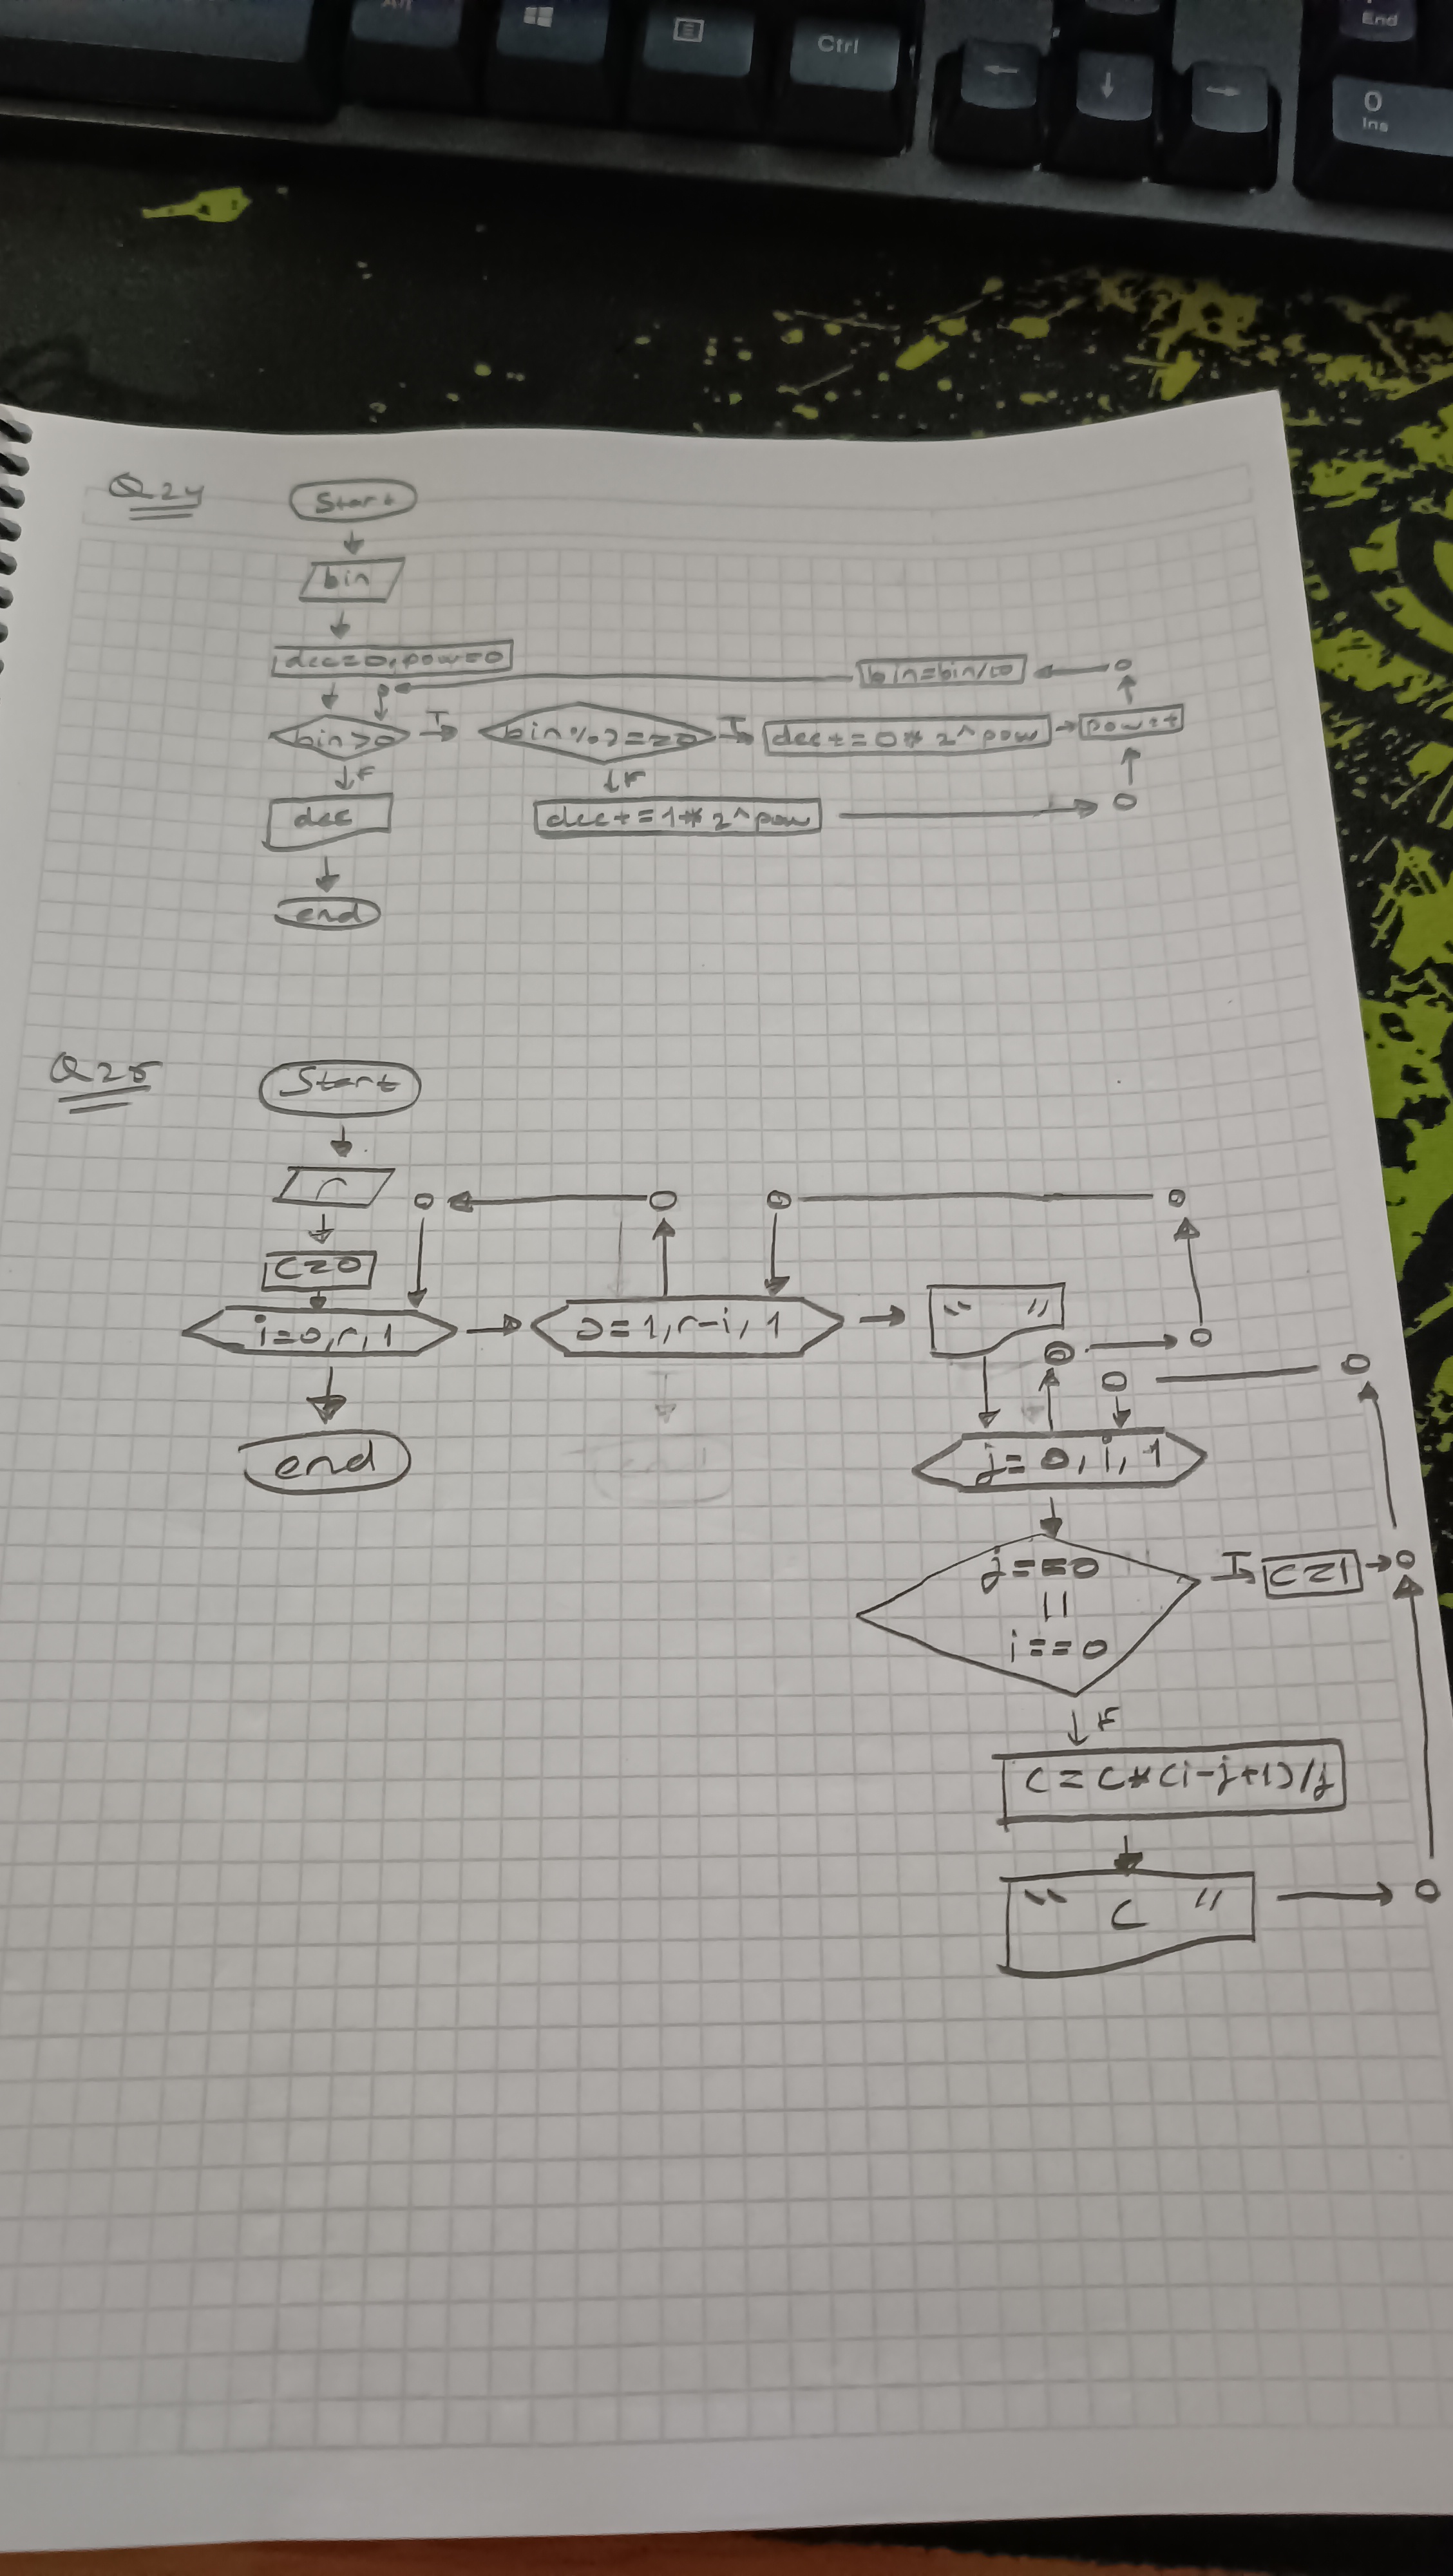 Alt
Ctrl
End
0
Ins
Q24
Start
bin
dec=0, pow=0
bin=bin/10
bin>0
T
bin%2==0
T
dec+=0*2^pow
pow++
F
F
dec
dec+=1*2^pow
end
Q25
Start
r
c=0
i=0,r,1
s=1,r-i,1
" "
end
j=0,i,1
j==0
||
i==0
T
c=1
F
c=c*(i-j+1)/j
" c "